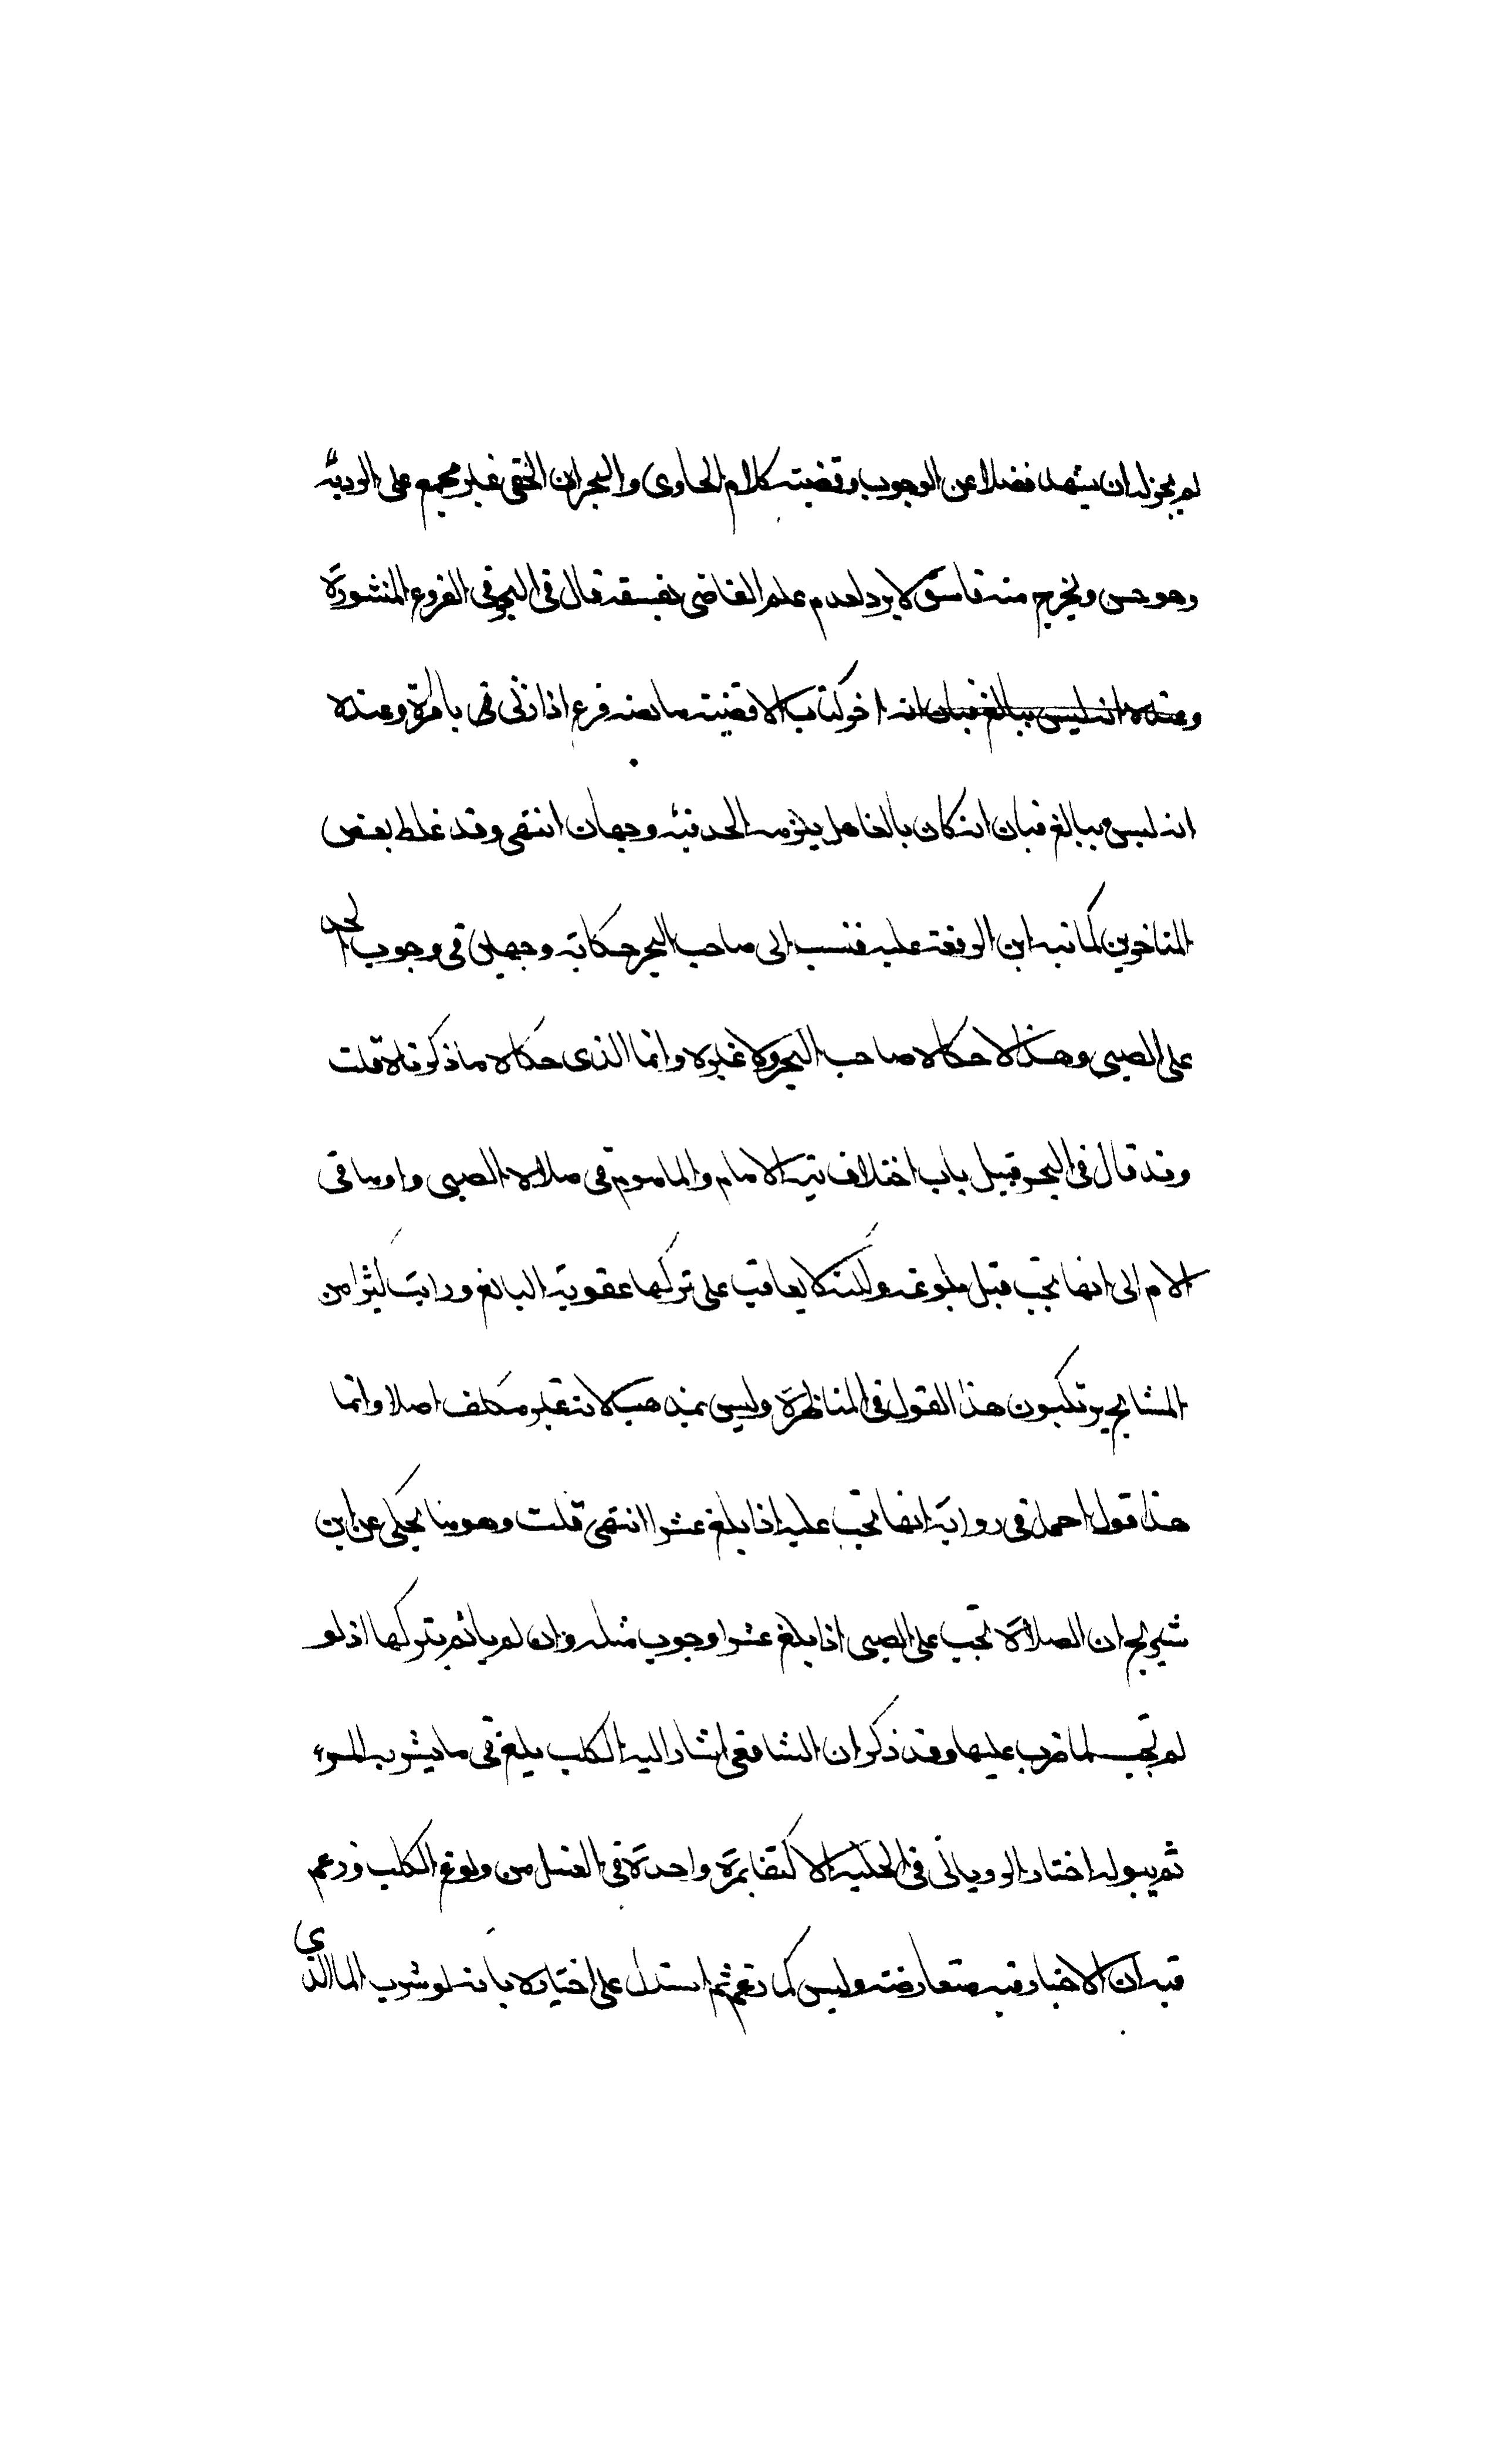 لم يجز له ان يشهد فضلا عن الوجوب وقضية كلام الحاوى والبحر ان الخفى غير مجمع على الوديه
وهو حسن ويخرج منه فاسق لا يرد لعدم علم القاضى بفسقه قال فى البحر فى الفروع المنثورة
اخر كتاب الاقضية ما نصه فرع اذا زنى بامرة وعنده
انه ليس ببالغ فبان انه كان بالغا هل يلزمه الحد فيه وجهان انتهى وقد غلط بعض
المتاخرين كما نبه ابن الرفعة عليه فنسب الى صاحب البحر حكاية وجهين فى وجوب الحد
على الصبى وهذا لا حكاه صاحب البحر ولا غيره وانما الذى حكاه ما ذكرناه قلت
وقد قال فى البحر قبيل باب اختلاف نية الامام والماموم فى صلاة الصبى واوما فى
الام الى انها تجب قبل بلوغه ولكنه لا يعاقب على تركها عقوبة البالغ ورايت كثيرا من
المشايخ يرتكبون هذا القول فى المناظرة وليس بمذهب لانه غير مكلف اصلا وانما
هذا قول احمد فى رواية انها تجب عليه اذا بلغ عشرا انتهى قلت وهو مما يحكى عن ابن
شريح ان الصلاة تجب على الصبى اذا بلغ عشرا وجوب مثله وان لم ياثم بتركها اذ لو
لم تجب لما ضرب عليها وقد ذكر ان الشافعى اشار اليه الكلب يلغ فى ما يشربه المرء
ثم يبوله اختار الرويانى فى الحلية الاكتفا بمرة واحدة فى الغسل من ولوغ الكلب وزعم
فيه ان الاخبار فيه متعارضة وليس كما زعم ثم استدل على اختياره بانه لو شرب الما الذي